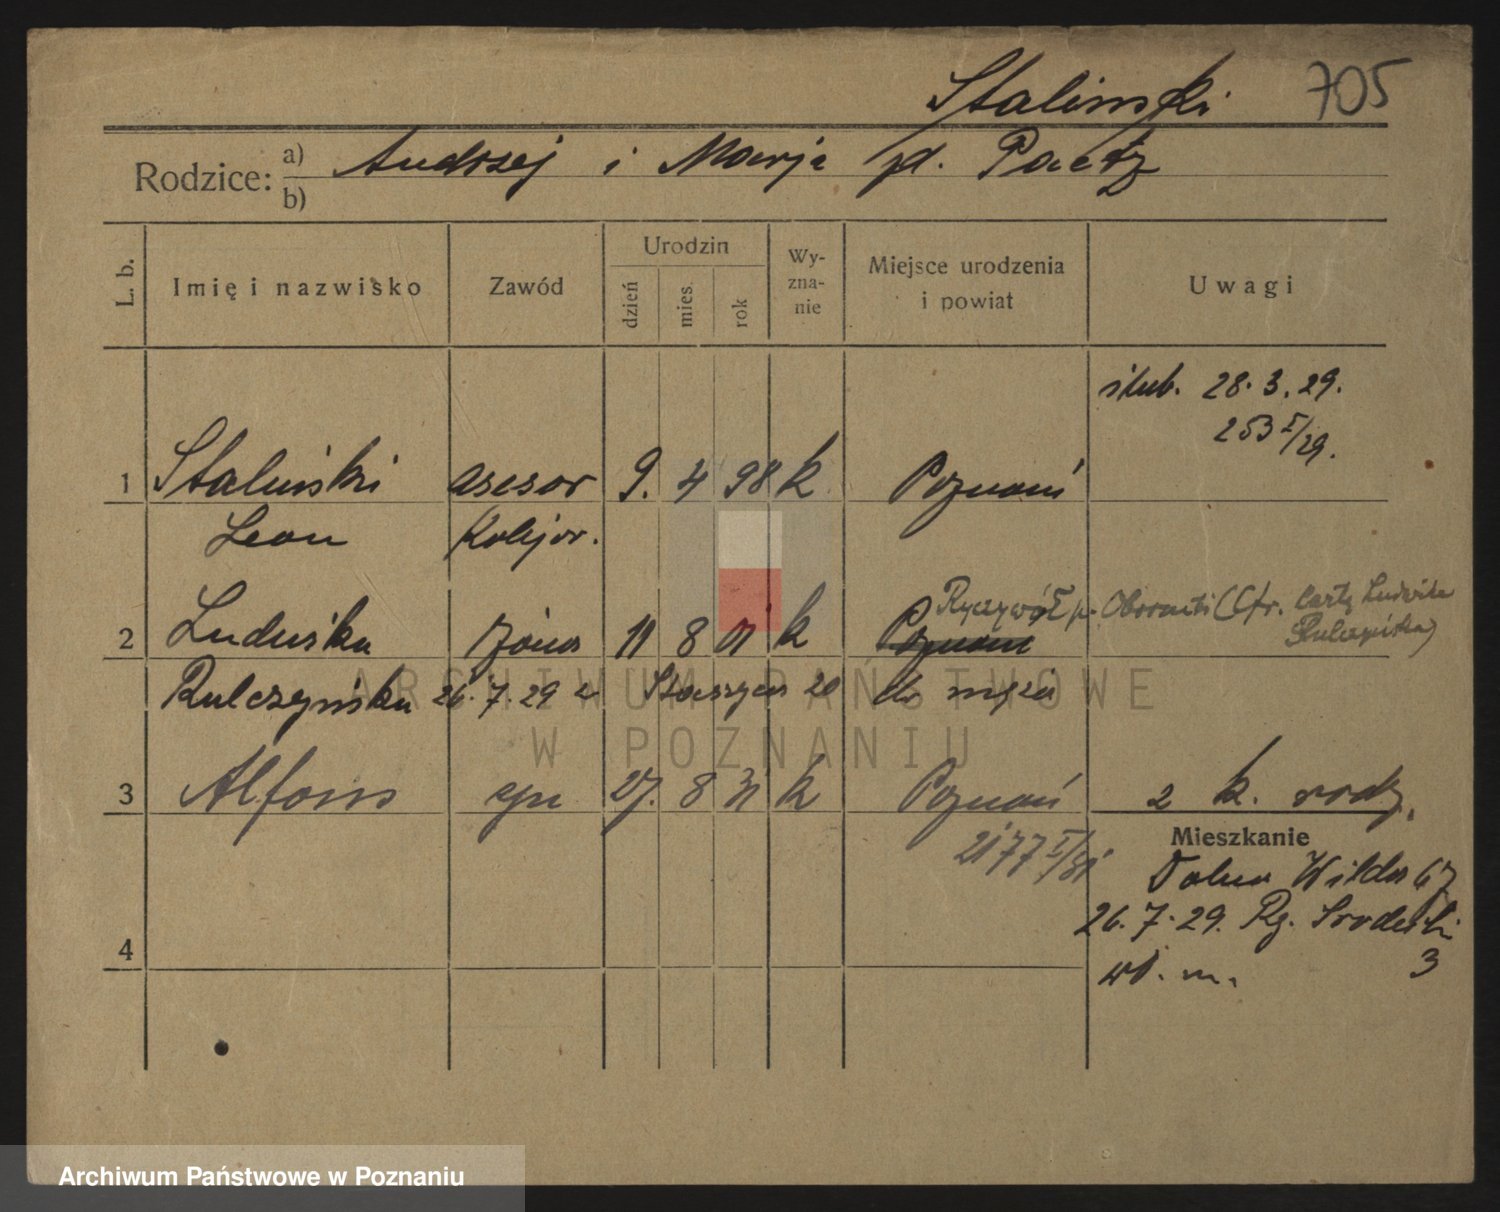 Stalinski 705
Rodzice: a) Andrzej i Marja zd. Paetz
b)
L. b. Imię i nazwisko Zawód Urodzin dzień mies. rok Wy-zna-nie Miejsce urodzenia i powiat Uwagi
ślub. 28.3.29.
253 I/29.
1 Staliński asesor 9. 4 98 k Poznań
Leon Kolejow.
Ryczywół p. Oborniki (Cfr. kartę Ludwika
Rulczyńska)
2 Ludwika żona 11 8 01 k Poznań
Rulczyńska 26.7.29 z Staszyca 20 do męża
3 Alfons syn 27. 8 31 k Poznań 2 k. rodz.
2177 I/31
Mieszkanie
Dolna Wilda 67
26.7.29. Rg. Srodecki
3
wł. m.
4
ARCHIWUM PAŃSTWOWE
W POZNANIU
Archiwum Państwowe w Poznaniu